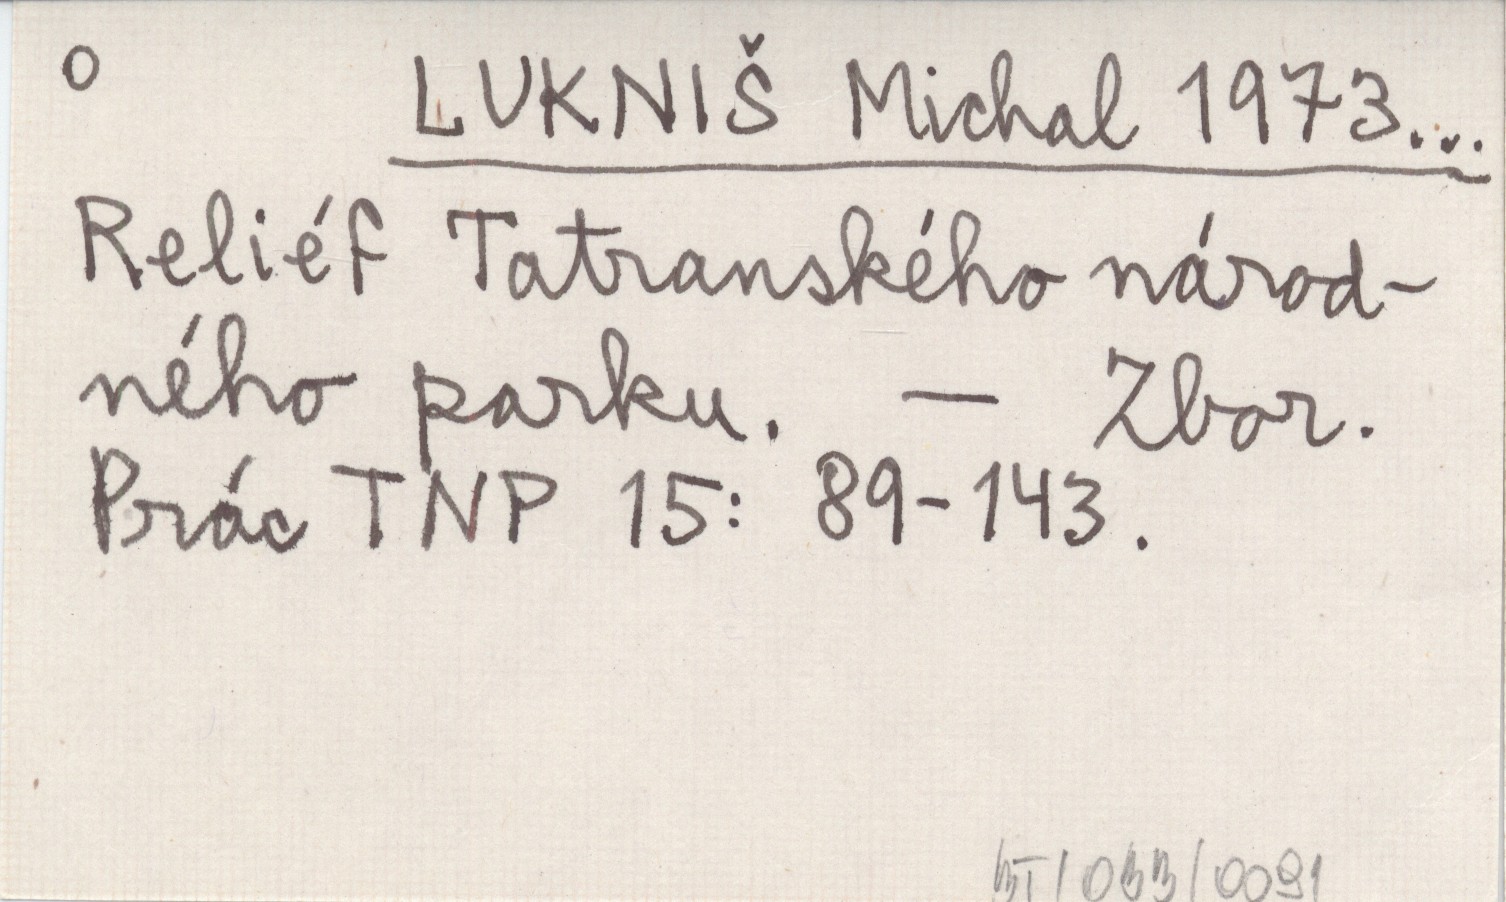 o LUKNIŠ Michal 1973...
Reliéf Tatranského národ-
ného parku. — Zbor.
Prác TNP 15: 89-143.